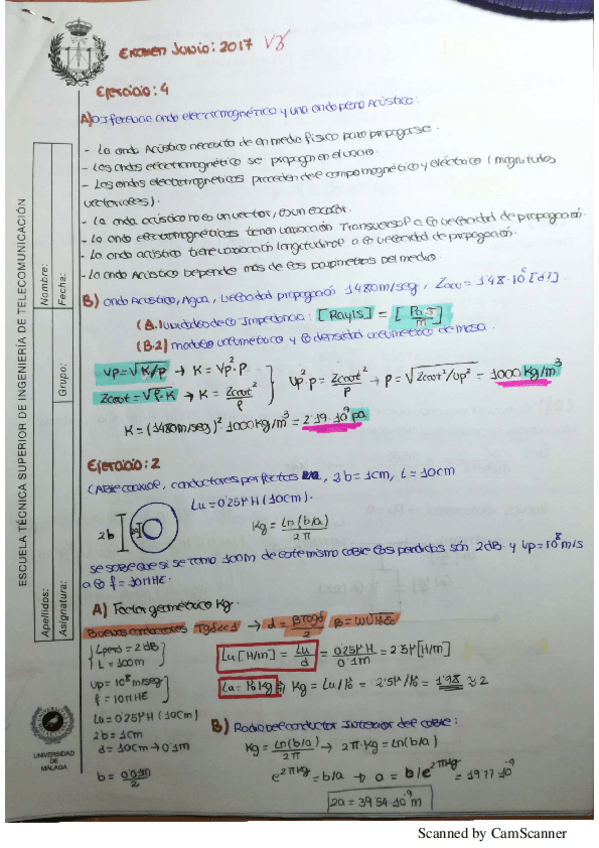 Examen Junio: 2017 V3
Ejercicio: 4
A) Diferencia onda electromagnético y una onda plena Acústica:
- La onda Acústica necesita de un medio físico para propagarse.
- Las ondas electromagnético se propagan en el vacío.
- Las ondas electromagneticas proceden de campo magnético y eléctrico (magnitudes
vectoriales).
- La onda acústica no es un vector, es un escalar.
- La onda electromagnéticas tienen variación Transversal a la velocidad de propagación.
- La onda acústica tiene variación longitudinal a la velocidad de propagación.
- La onda Acústica depende más de los parámetros del medio.
B) onda Acústica, Agua, velocidad propagación 1480m/seg, Zacu = 1'48·10⁶ [d1]
(B.1) unidades de la Impedancia: [Rayls] = [Pa·s/m]
(B.2) modulo volumétrico y la densidad volumétrica de masa.
Vp=√K/ρ → K = Vp²·ρ
Zcaot=√ρ·K → K = Zcaot²/ρ
Vp²·ρ = Zcaot²/ρ → ρ = √Zcaot²/Vp² = 1000 Kg/m³
K = (1480m/seg)² 1000 Kg/m³ = 2'19·10⁹ pa
Ejercicio: 2
Cable coaxial, conductores perfectos, 2b = 1cm, L = 10cm
Lu = 0'25μH (10cm).
2b
Kg = Ln(b/a)/2π
se sabe que si se toma 100m de este mismo cable las perdidas son 2dB. y Vp=10⁸ m/s
a la f = 10MHz.
A) Factor geométrico Kg.
Buenos conductores Tgδ<<1 → α = βtgδ/2 β = ω√με
Lperd = 2dB
L = 100m
Vp = 10⁸ m/seg
f = 10MHz
Lu = 0'25μH (10cm)
2b = 1cm
d = 10cm → 0'1m
b = 0'01m/2
Lu [H/m] = Lu/d = 0'25μH/0'1m = 2'5μ[H/m]
Lu = μ₀ Kg Kg = Lu/μ₀ = 2'5μ/μ₀ = 1'98 ≈ 2
B) Radio del conductor Interior del cable:
Kg = Ln(b/a)/2π → 2π·Kg = Ln(b/a)
e^2πKg = b/a → a = b/e^2πKg = 19'77·10⁻⁹
2a = 39'54·10⁻⁹ m
ESCUELA TÉCNICA SUPERIOR DE INGENIERÍA DE TELECOMUNICACIÓN
Apellidos:
Nombre:
Asignatura:
Grupo:
Fecha:
UNIVERSIDAD
DE
MÁLAGA
Scanned by CamScanner